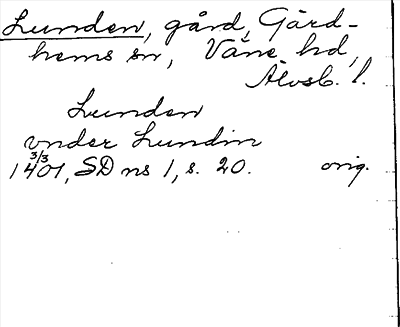 Lunden, gård, Gärd-
hems sn, Väne hd,
Älvsb. l.
Lunden
vnder Lundin
3/3
1401, SD ns 1, s. 20. orig.